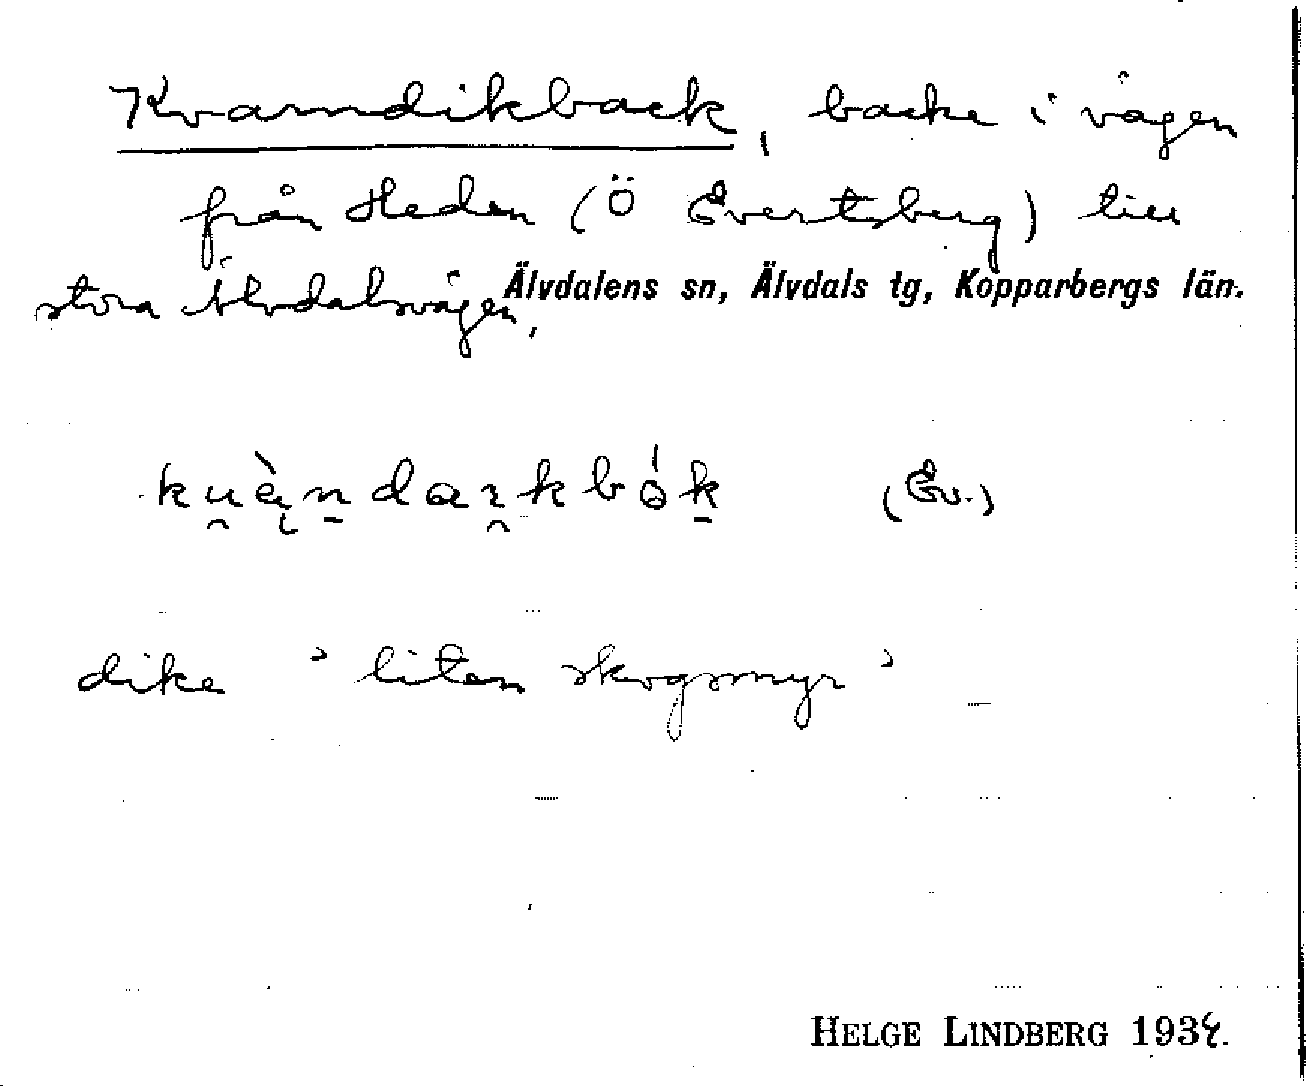 Kvarndikback, backe i vägen
från Heden (Ö Evertsberg) till
stora Älvdalsvägen, Älvdalens sn, Älvdals tg, Kopparbergs län.
(Ev.)
dike ' liten skogsmyr '
HELGE LINDBERG 193